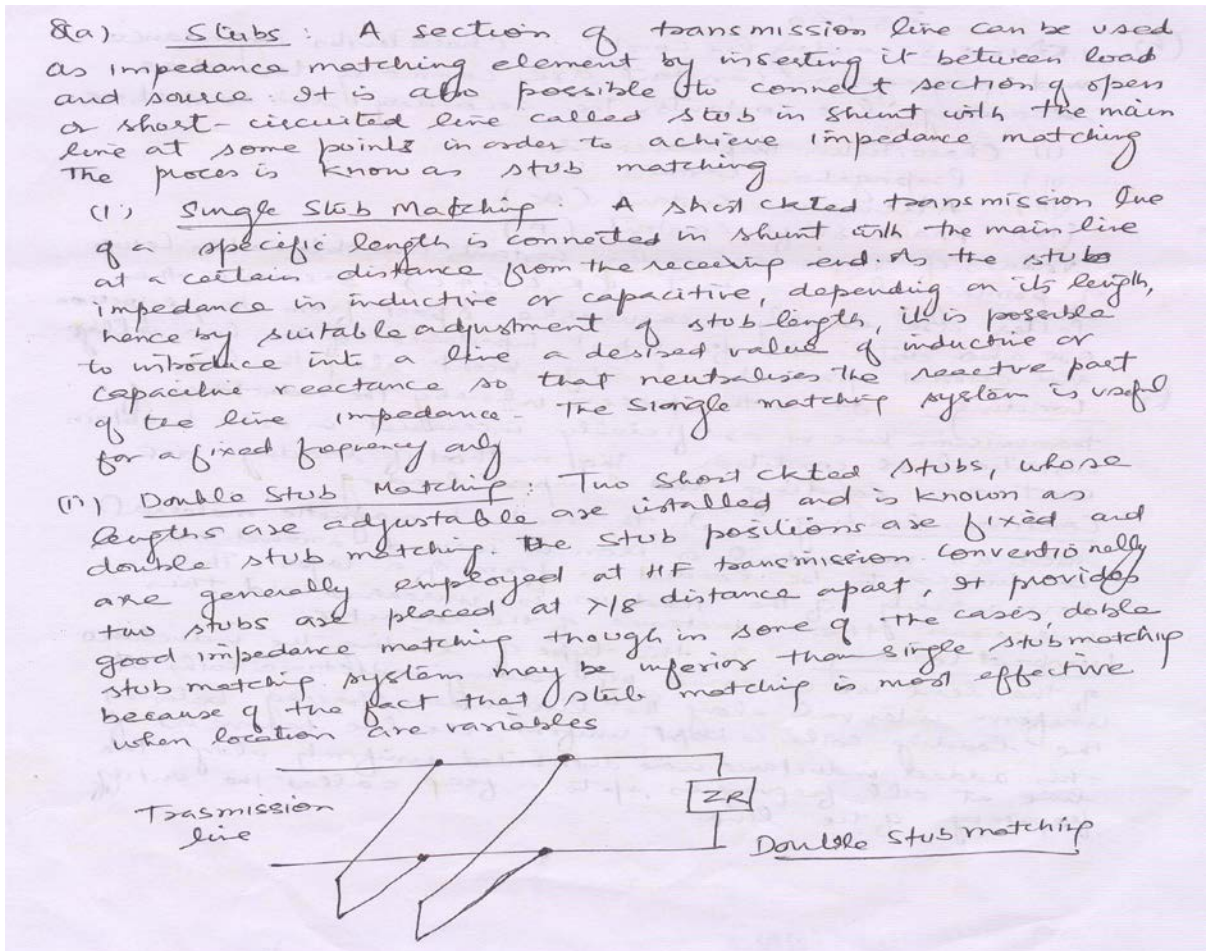 8(a) Stubs : A section of transmission line can be used
as impedance matching element by inserting it between load
and source. It is also possible to connect section of open
or short-circuited line called stub in shunt with the main
line at some points in order to achieve impedance matching
The proces is know as stub matching
(i) Single Stub Matching : A short ckted transmission line
of specific length is connected in shunt with the main line
at a certain distance from the receiving end As the stub
impedance is inductive or capacitive, depending on its length,
hence by suitable adjustment of stub length, it is possible
to introduce into a line a desired value of inductive or
capacitive reactance so that neutralises the reactive part
of the line impedance. The single matching system is useful
for a fixed frequency only
(ii) Double Stub Matching : Two Short ckted stubs, whose
lengths are adjustable are installed and is known as
double stub matching. The stub positions are fixed and
are generally employed at HF transmission. Conventionally
two stubs are placed at λ/8 distance apart, It provides
good impedance matching though in some of the cases, doble
stub matching system may be inferior than single stub matching
because of the fact that stub matching is most effective
when location are variables
ZR
Trasmission
line
Double Stub matching